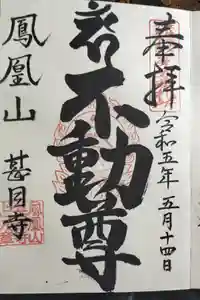 奉拝
令和五年五月十四日
不動尊
鳳凰山
甚目寺